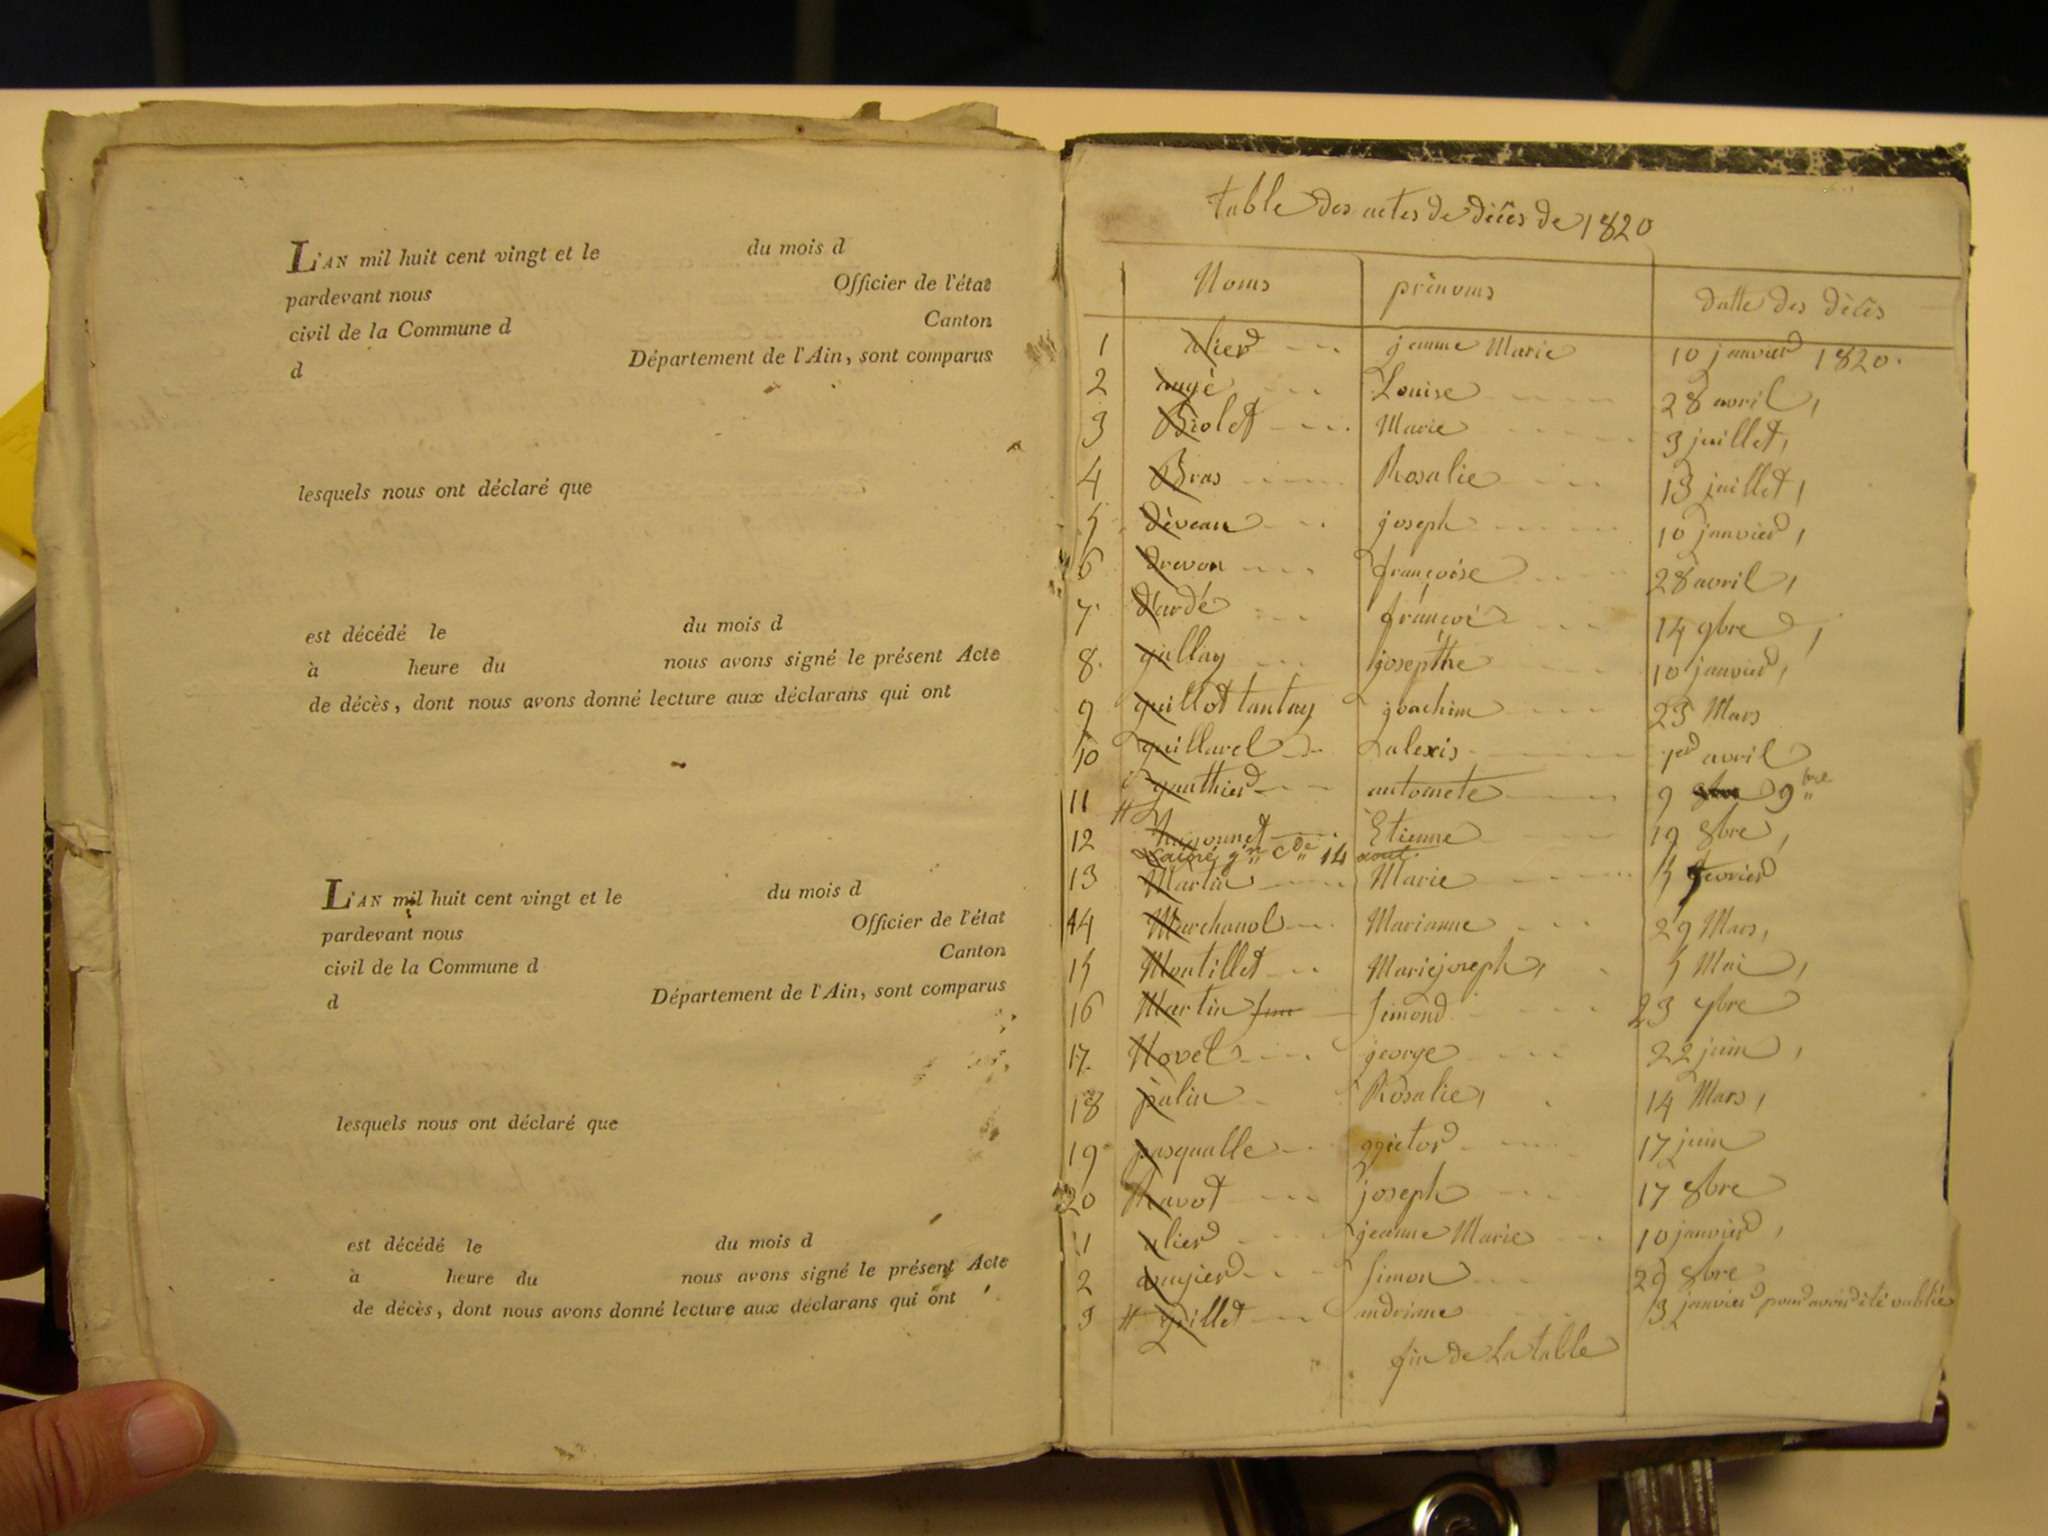 L'AN mil huit cent vingt et le du mois d
pardevant nous Officier de l'état
civil de la Commune d Canton
d Département de l'Ain, sont comparus
lesquels nous ont déclaré que
est décédé le du mois d
à heure du nous avons signé le présent Acte
de décès, dont nous avons donné lecture aux déclarans qui ont
L'AN mil huit cent vingt et le du mois d
pardevant nous Officier de l'état
civil de la Commune d Canton
d Département de l'Ain, sont comparus
lesquels nous ont déclaré que
est décédé le du mois d
à heure du nous avons signé le présent Acte
de décès, dont nous avons donné lecture aux déclarans qui ont
table des actes de décès de 1820
Noms prénoms datte des décès
1 alier jeanne Marie 10 janvier 1820.
2 augé Louise 28 avril,
3 Biolet Marie 3 juillet,
4 Bras Rosalie 13 juillet,
5 déveau joseph 10 janvier,
6 drevon françoise 28 avril,
7 dardé françoi 14 9bre,
8. gallay josepthe 10 janvier,
9 guillot tantay joachim 23 Mars
10 guillarel alexis 1er avril
11 gauthier antoinete 9 9bre
12 Etienne 19 8bre,
14 aout
13 Martin Marie 5 fevrier
14 Marchand Marianne 29 Mars,
15 Montillet Marie joseph, 5 Mai,
16 Martin Simond 23 9bre
17 Novel george 22 juin,
18 palin Rosalie, 14 Mars,
19 pasqualle 17 juin
20 Ravot joseph 17 8bre
1 alier jeanne Marie 10 janvier,
2 augier Simon 29 8bre
3 grillet andriane 3 janvier pour avoir été oublié
fin de La table